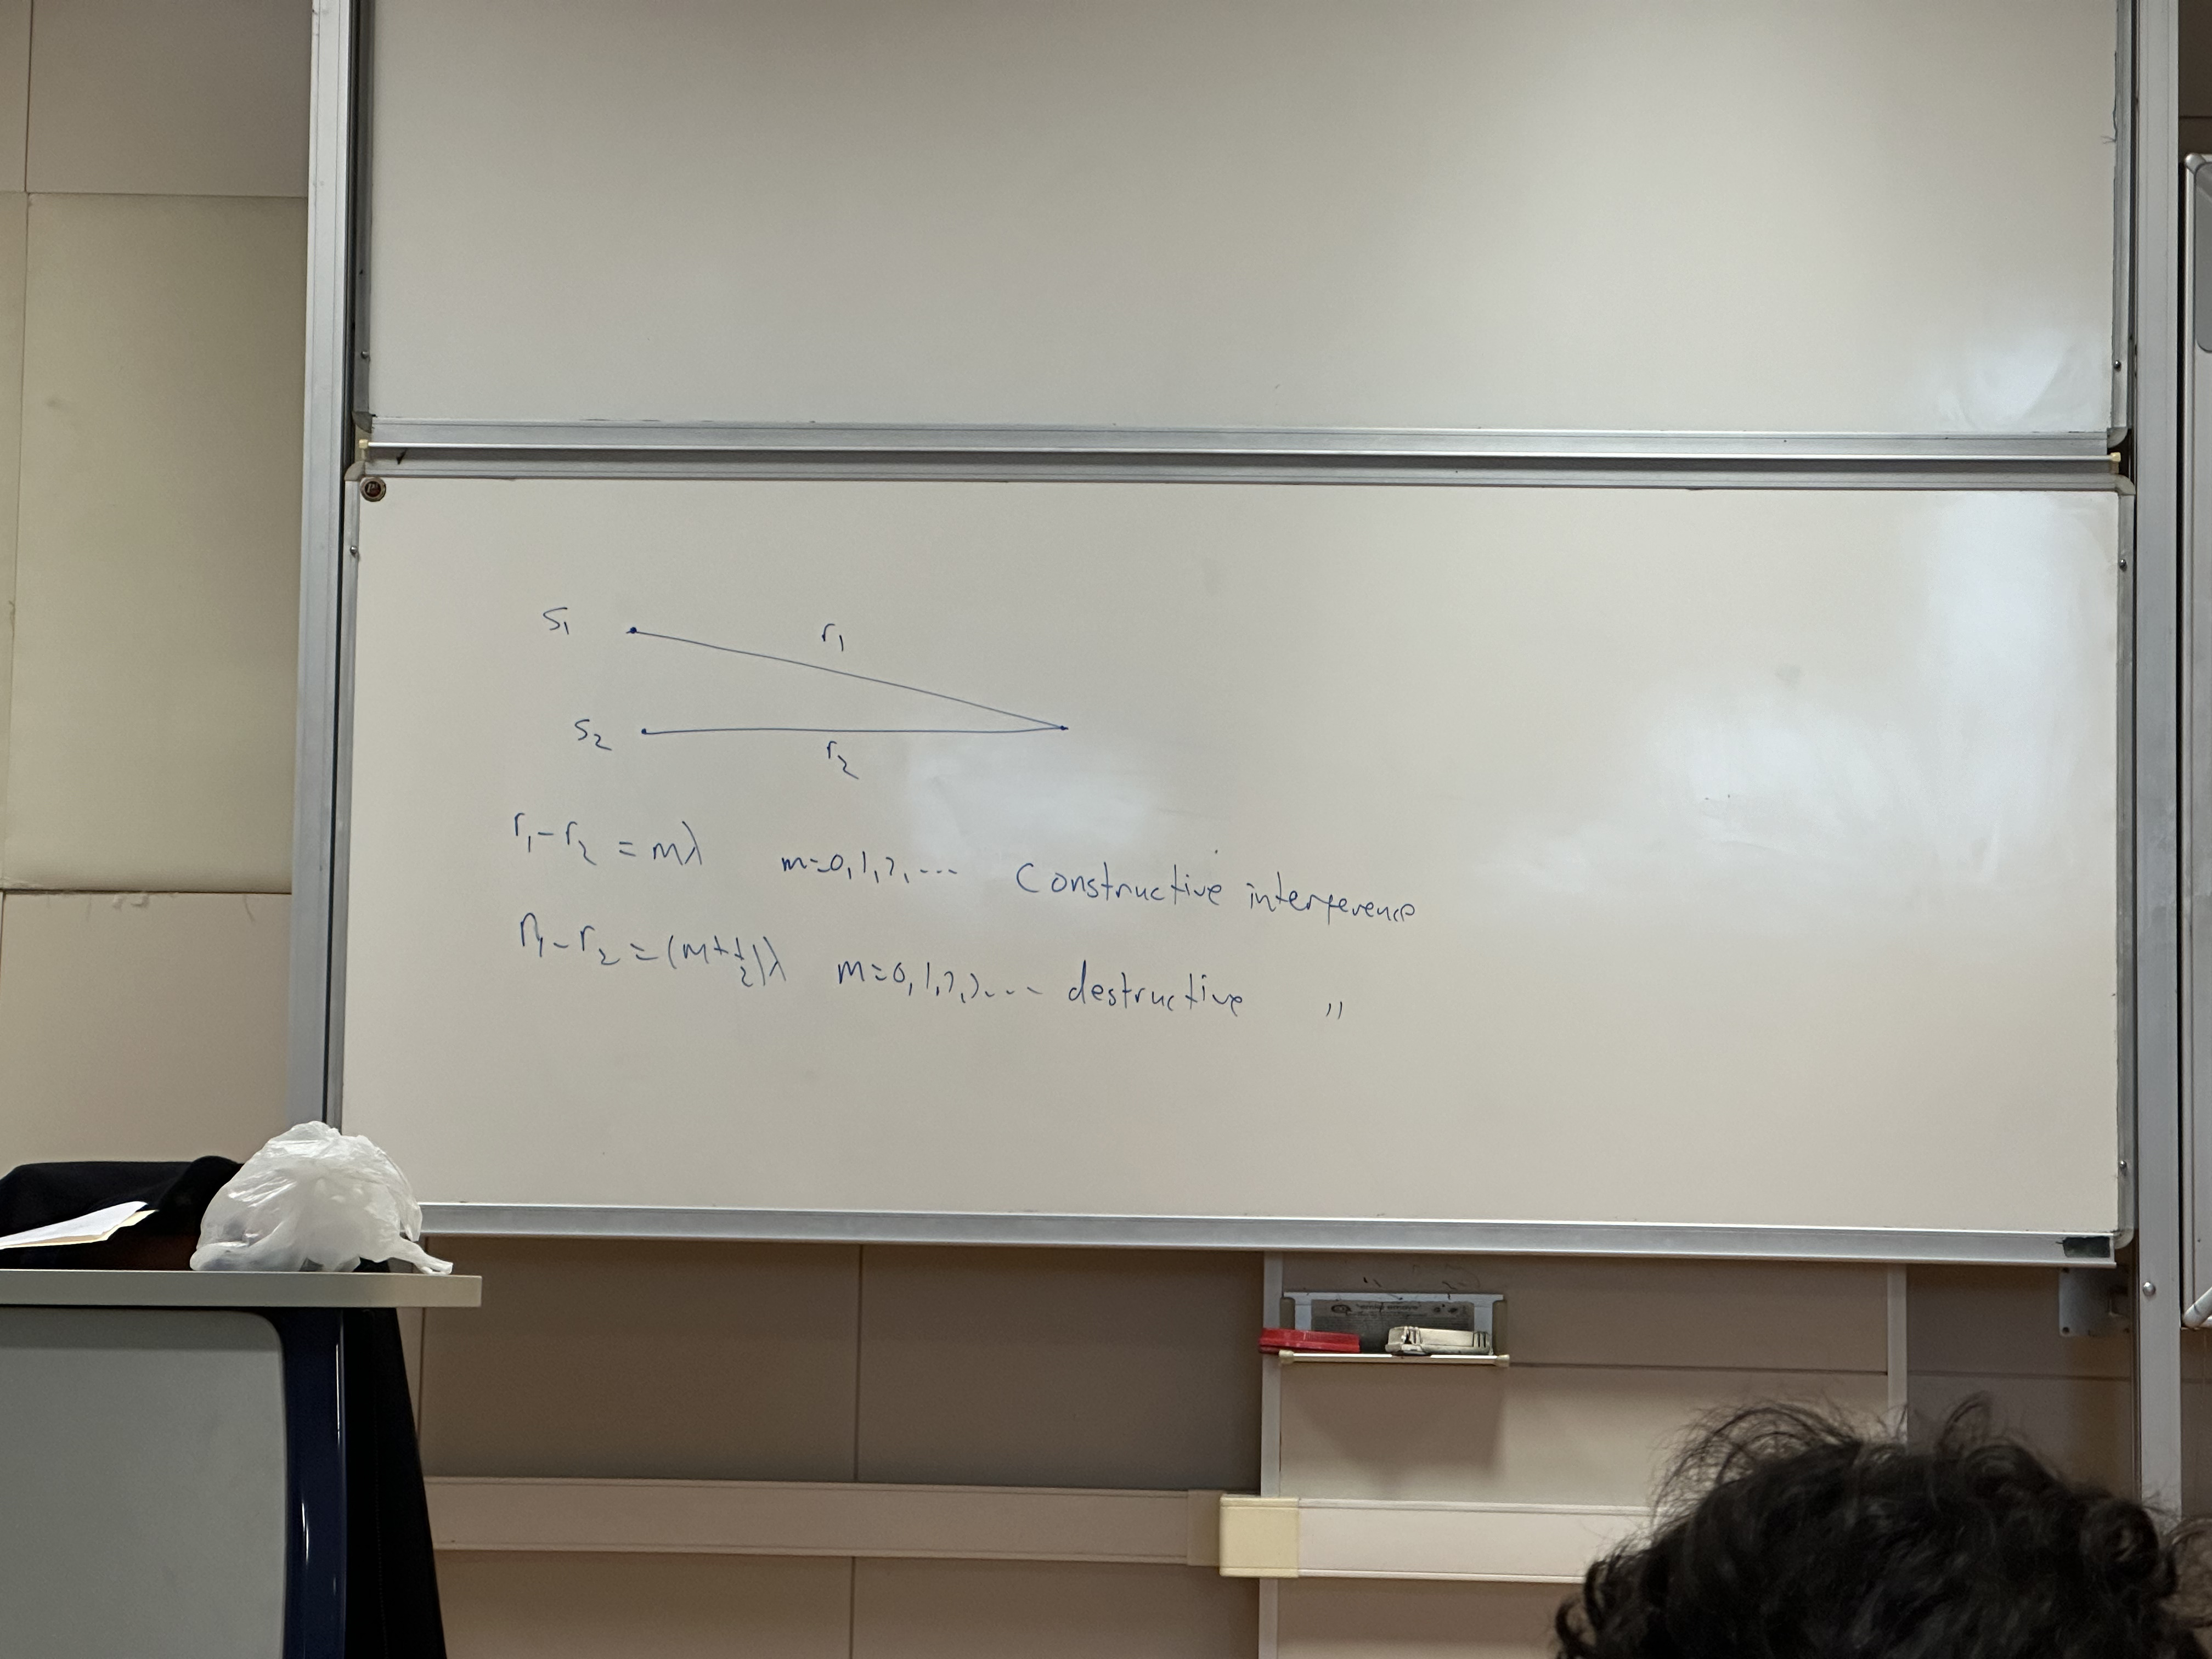 S₁
r₁
S₂
r₂
r₁-r₂ = mλ m=0,1,2,... Constructive interference
r₁-r₂ = (m+½)λ m=0,1,2,3... destructive "